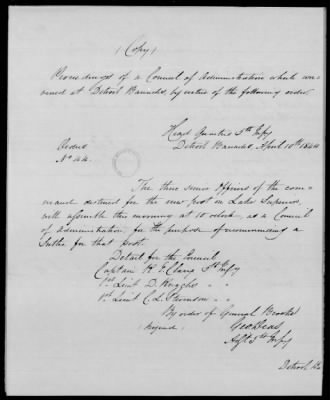 (Copy)
Proceedings of a Council of Administration which con-
vened at Detroit Barracks, by virtue of the following order.
Head Quarters 5th Infy
Detroit Barracks, April 10th 1844
Orders
No 44.
The three senior Officers of the com-
mand destined for the new post on Lake Superior,
will assemble this morning at 10 o'clock, as a Council
of Administration for the purpose of recommending a
Sutler for that post.
Detail for the Council
Captain 5th Infy
1st Lieut D. Ruggles " "
1st Lieut C. L. Stevenson " "
By order of General Brooke
(Signed) Geo Deas
Adjt 5th Infy
Detroit